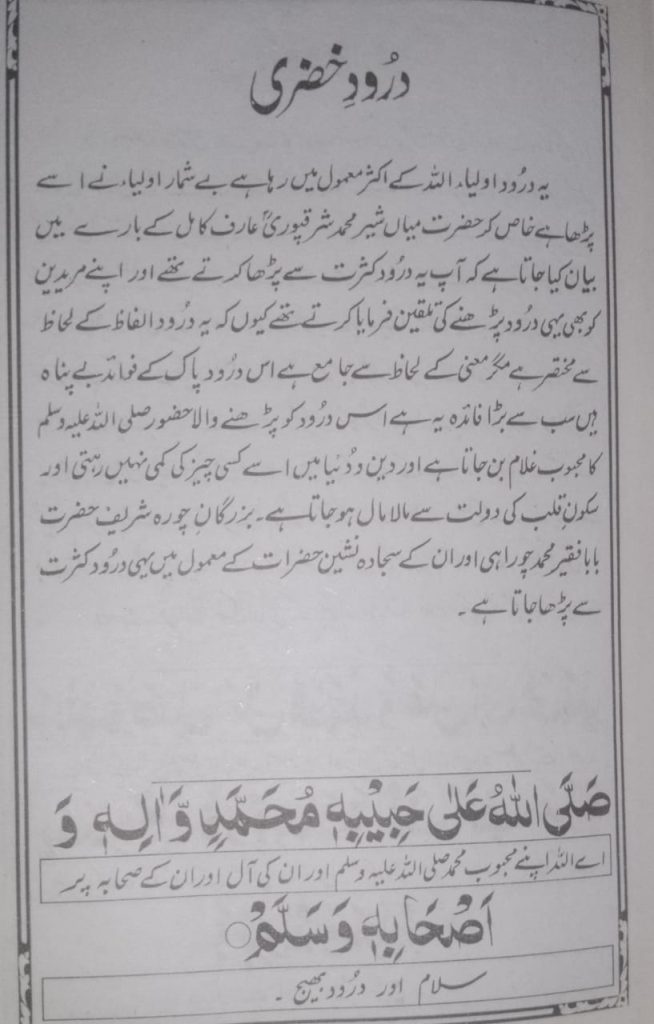 درُودِ خضری
یہ درُود اولیاء اللہ کے اکثر معمول میں رہا ہے بے شمار اولیاء نے اسے
پڑھا ہے خاص کر حضرت میاں شیر محمد شرقپوریؒ عارف کامل کے بارے میں
بیان کیا جاتا ہے کہ آپ یہ درُود کثرت سے پڑھا کرتے تھے اور اپنے مریدین
کو بھی یہی درود پڑھنے کی تلقین فرمایا کرتے تھے کیوں کہ یہ درُود الفاظ کے لحاظ
سے مختصر ہے مگر معنی کے لحاظ سے جامع ہے اس درُود پاک کے فوائد بے پناہ
ہیں سب سے بڑا فائدہ یہ ہے اس درُود کو پڑھنے والا حضور صلی اللہ علیہ وسلم
کا محبوب غلام بن جاتا ہے اور دین و دُنیا میں اسے کسی چیز کی کمی نہیں رہتی اور
سکونِ قلب کی دولت سے مالا مال ہو جاتا ہے۔ بزرگانِ چورہ شریف حضرت
بابا فقیر محمد چوراہی اور ان کے سجادہ نشین حضرات کے معمول میں یہی درُود کثرت
سے پڑھا جاتا ہے۔
صَلَّی اللہُ عَلٰی حَبِیْبِہٖ مُحَمَّدٍ وَّاٰلِہٖ وَ
اے اللہ اپنے محبوب محمد صلی اللہ علیہ وسلم اور ان کی آل اور ان کے صحابہ پر
اَصْحَابِہٖ وَسَلَّمْ○
سلام اور درُود بھیج۔